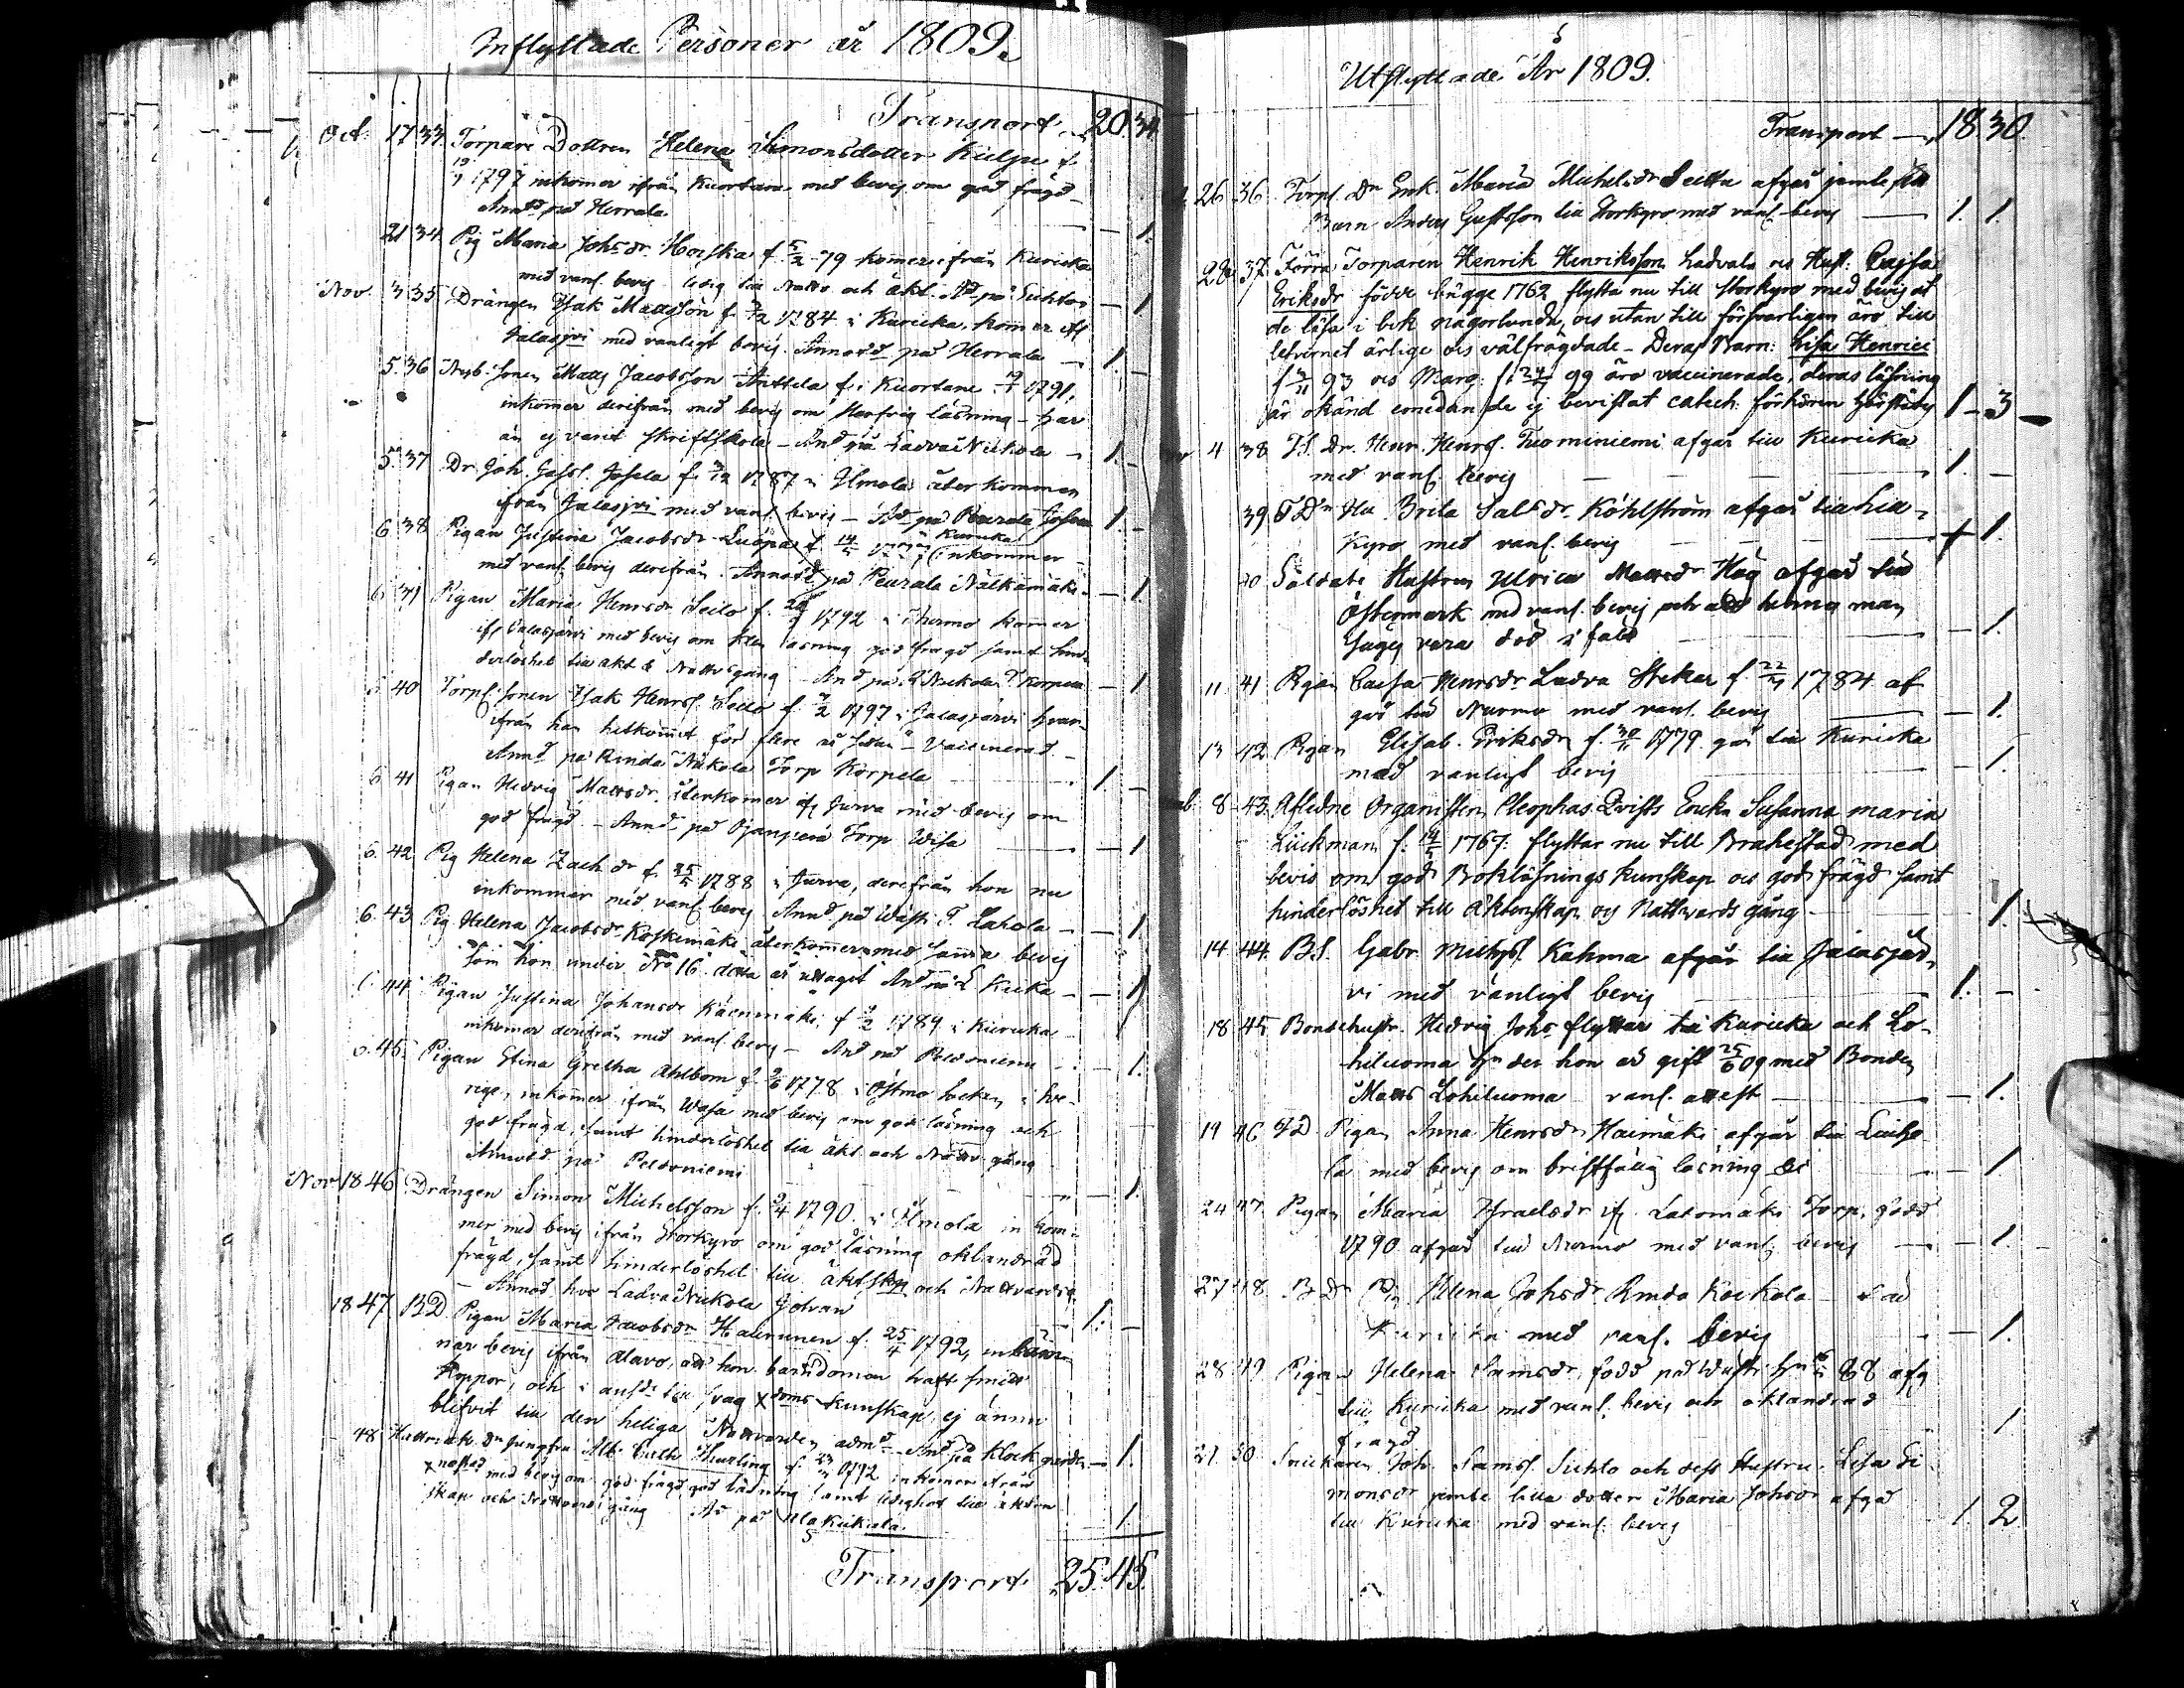 Inflyttade Personer år 1809.
Transport 20. 34.
Oct. 17 33 Torpare Dottren Helena Simonsdotter Kielpe f.
1797 inkommer ifrån Kuortane med bevis om god frägd
Annot: på Herrala. 1.
21 34 Pig Maria Johsdr. Horska f. 5/2 79 komer ifrån Kuricka
med vanl. bevis ledig till Nattv. och äkt. på Sichto 1
Nov. 3 35 Drängen Isak Mattsson f. 1784 i Kuricka, kommer ifr
Jalasjvi med vanligt bevis. Annot på Herrala 1.
5. 36 Nyb. Sonen Matts Jacobsson Anttila f. i Kuortane 1791,
inkommer derifrån med bevis om läsning - har
än ej varit skriftskola - And på Ladva Nickola 1.
5. 37 Dr. Joh. f. 1787 i Ilmola återkommen
från Jalasjvi med vanl. bevis - And på Peurala 1.
6 38 Pigan Justina Jacobsdr Luopa f. 14/5 i Kuricka inkommer
med vanl. bevis derifrån. Annot på Peurala Nälkämäki 1.
6 39 Pigan Maria Henrsdr Seilo f. 1792 i komer
ifr Jalasjärvi med bevis om läsning god frägd samt hin-
derlöshet till äkt & Nattv.gång And på Nickola T. Korpela 1
6 40 Torp. Sonen Isak Henrs. Seilo f. 1797 i Jalasjärvi hvar-
ifrån han hitkommit för flere år sedan - Vaccinerad. -
Annd på Rinda Nickola Torp Korpela 1.
6 41 Pigan Hedvig Mattsdr. återkomer ifr Jurva med bevis om
god frägd. - Annd på Ojanperä Torp Wisa 1
6. 42 Pig Helena Zachdr f. 25/5 1788 i Jurva, derifrån hon nu
inkommer med vanl. bevis Annd på T. Lahola 1
6. 43 Pig Helena Jacobsdr Koskimäki återkommer med samma bevis
som hon under No 16 detta år uttaget And på L Kuka 1
6. 44 Pigan Justina Johansdr Käenmäki, f 1789 i Kuricka
inkomer derifrån med vanl. bevis - And på Peldoniemi 1.
6. 45 Pigan Stina Gretha Ahlbom f. 1778 i Östmo socken i Sve-
rige, inkommer ifrån Wasa med bevis om god läsning och
god frägd, samt hinderlöshet till äkt. och Nattv. gång
Annoterd på Peldoniemi 1.
Nov 18 46 Drängen Simon Michelsson f. 1790. i Ilmola in kom-
mer med bevis ifrån Storkyro om god läsning oklandrad
frägd, samt hinderlöshet till äktskap och Nattvards
- Annod. hos Ladva Nickola Johan 1.
18 47 BD Pigan Maria Jacobsdr Halkinen f. 25/4 1792,
nar bevis ifrån Alavo, att hon barndomen haft
Koppor, och i ansde till svag kunskap, ej ännu
blifvit till den heliga Nattvarden admd And på Klockgården 1.
48 Jungfru Hurling f. 1792 inkommer ifrån
med bevis om god frägd, god läsning samt ledighet till äkten-
skap och Nattvards gång på Ala Kukola. 1.
Transport 25. 45.
Utflyttade År 1809.
Transport 18. 30.
26 36 Torp. Dn Enk. Maria Michelsdr Seitta afgår jemte
Barn Anders Gustfson till Storkyro med vanl. bevis 1. 1.
28 37. Förra Torparen Henrik Henriksson Ladvala och Hust: Cajsa
Eriksdr födde bägge 1762 flytta nu till Storkyro med bevis at
de läsa i bok någorlunda, och utan till försvarligen äro till
lefvernet ärlige och välfrägdade - Deras Barn: Lisa Henrici
f. 93 och Marg: f. 99 äro vaccinerade, deras läsning
är okänd emedan de ej bevistat catech. förhören 1 - 3
4 38 Dr. Henr. Henrs. Tuominiemi afgår till Kuricka
med vanl. bevis 1. -
39 Brita Salsdr. Köhlström afgår till Lill-
Kyro med vanl. bevis 1.
40 Soldats Hustrun Ulrica Mattsdr Häg afgår till
Östermark med vanl. bevis och att hennes man
säges vara död i fält 1.
11 41 Pigan Caisa Henrsdr Ladva f. 1784 af
går till Nurmo med vanl. bevis 1.
13 42. Pigan Elisab. Eriksdr f. 30/11 1779. går till Kuricka
med vanligt bevis 1.
8 43. Afledne Organisten Cleophas Qvists Enka Susanna Maria
Lückman f. 14/5 1767: flyttar nu till Brahestad med
bevis om god Bokläsnings kunskap och god frägd samt
hinderlöshet till äktenskap och Nattvards gång 1.
14 44. B.S. Gabr. Michels. Kahma afgår till Jalasjär-
vi med vanligt bevis 1. -
18 45 Bondehustr. Hedvig Johs flyttar till Kuricka och Lo-
hiluoma der hon är gift 25/6 09 med Bonden
Matts Lohiluoma vanl. attest 1.
19 46 Pigan Anna Henrsdr Haimäki afgår till
la med bevis om bristfällig läsning 1.
24 47. Pigan Maria Israelsdr ifr Latomäki Torp, född
1790 afgår till Nurmo med vanl. bevis 1.
27 48 B. Dr Helena Johsdr Rinda Kockola
Kuricka med vanl. bevis 1.
28 49 Pigan Helena Samsdr, född på 88 afg
till Kuricka med vanl. bevis och oklandrad
frägd 1
29. 50. Snickaren Joh. Sams. Sichto och dess Hustru Lisa Si-
monsdr jemte lilla dotter Maria Johsdr afgå
till Kuricka med vanl. bevis 1. 2.